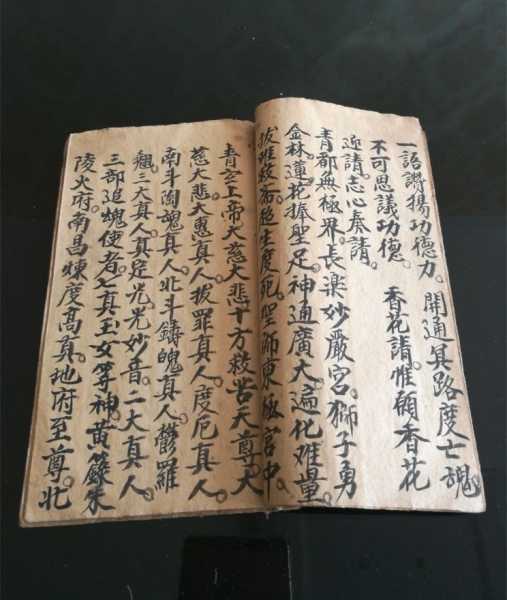 一語讚揚功德力。開通冥路度亡魂。
不可思議功德。 香花請。惟願香花
迎請。志心奏請。
青都無極界。長楽妙嚴宮。獅子勇
金林。蓮花捧聖足。神通廣大。遍化难量。
拔 救斋。超生度死。聖师東極宫中。
青玄上帝。大慈大悲十方救苦天尊。大
慈大悲大惠真人。拔罪真人。度厄真人。
南斗闓魂真人。北斗鑄魄真人。鬱羅
翹三大真人。真定光。光妙音。二大真人。
三部追魂使者。七真玉女等神。黄籙朱
陵火府。南昌煉度高真。地府至尊。北